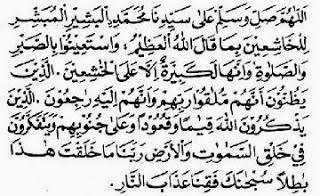 اَللّٰهُمَّ وَصَلِّ وَسَلِّمْ عَلٰى سَيِّدِنَا مُحَمَّدٍ الْبَشِيْرِ الْمُبَشِّرِ
لِلْخَاشِعِيْنَ بِمَا قَالَ اللّٰهُ الْعَظِيْمُ، وَاسْتَعِيْنُوْا بِالصَّبْرِ
وَالصَّلٰوةِ وَاِنَّهَا لَكَبِيْرَةٌ اِلَّا عَلَى الْخٰشِعِيْنَ. الَّذِيْنَ
يَظُنُّوْنَ اَنَّهُمْ مُلٰقُوْا رَبِّهِمْ وَاَنَّهُمْ اِلَيْهِ رٰجِعُوْنَ. الَّذِيْنَ
يَذْكُرُوْنَ اللّٰهَ قِيٰمًا وَقُعُوْدًا وَعَلٰى جُنُوْبِهِمْ وَيَتَفَكَّرُوْنَ
فِيْ خَلْقِ السَّمٰوٰتِ وَالْاَرْضِ رَبَّنَا مَا خَلَقْتَ هٰذَا
بٰطِلًا سُبْحٰنَكَ فَقِنَا عَذَابَ النَّارِ.